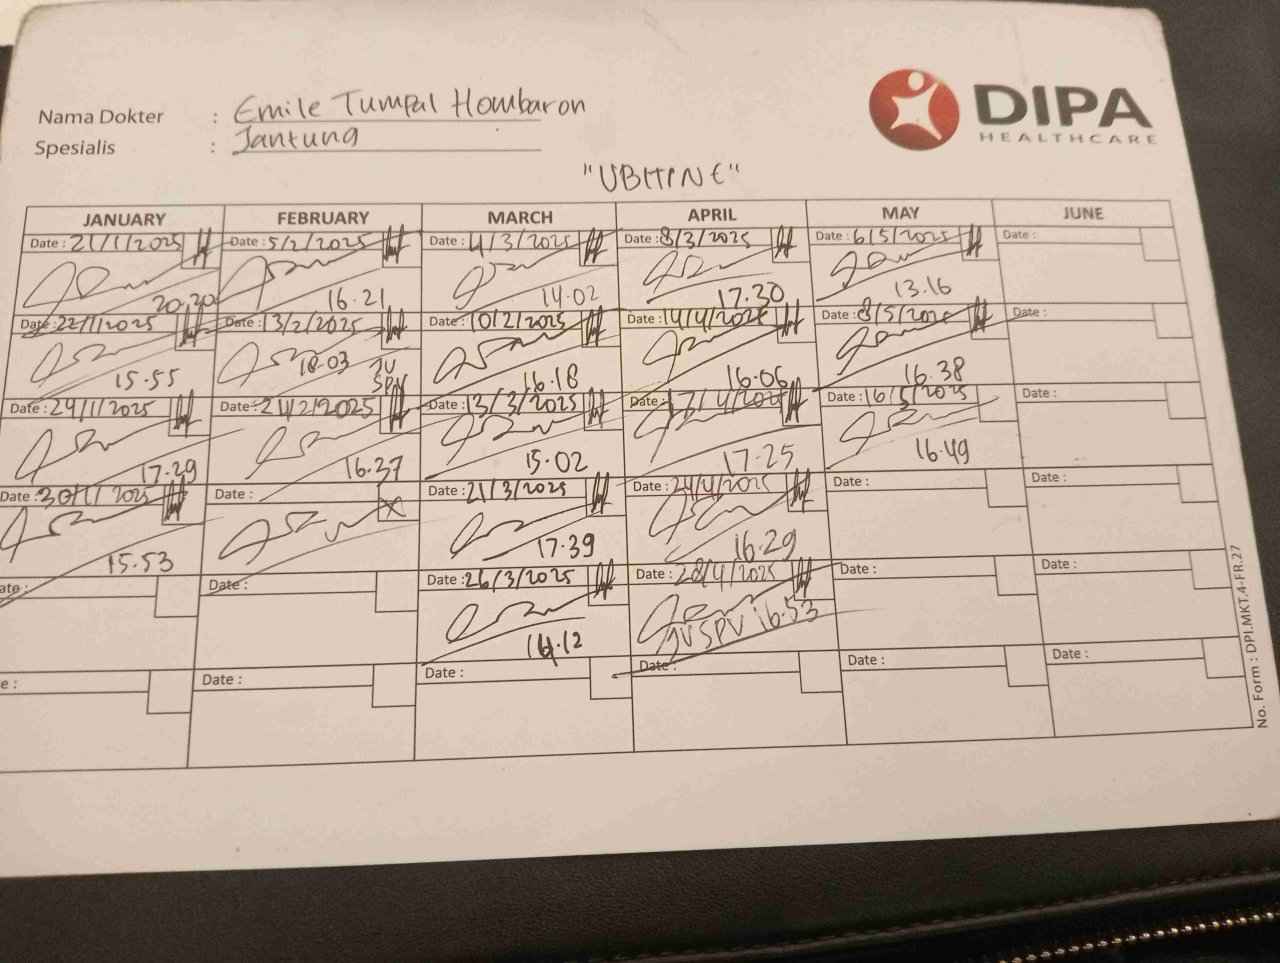 DIPA
HEALTHCARE
Nama Dokter : Emile Tumpal Hombaron
Spesialis : Jantung
"UBITINE"
JANUARY FEBRUARY MARCH APRIL MAY JUNE
Date : 21/1/2025 Date : 5/2/2025 Date : 4/3/2025 Date : 8/3/2025 Date : 6/5/2025 Date :
20.20 16.21 14.02 17.30 13.16
Date : 22/1/2025 Date : 13/2/2025 Date : 10/2/2025 Date : 14/4/2025 Date : 8/5/2025 Date :
15.55 18.03 JV SPV 16.18 16.06 16.38
Date : 24/1/2025 Date : 24/2/2025 Date : 13/3/2025 Date : 17/4/2025 Date : 16/5/2025 Date :
17.29 16.37 15.02 17.25 16.49
Date : 30/1/2025 Date : Date : 21/3/2025 Date : 24/4/2025 Date : Date :
15.53 17.39 16.29
Date : Date : Date : 26/3/2025 Date : 28/4/2025 Date : Date :
12 JV SPV 16.53
Date : Date : Date : Date : Date :
No. Form : DPI.MKT.4-FR.27